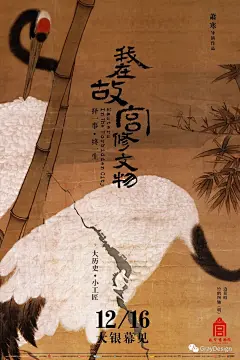 萧寒
导演作品
我在故宫修文物
Masters
In The Forbidden City
择一事·终一生
大历史·小工匠
12/16
大银幕见
GrayDesign